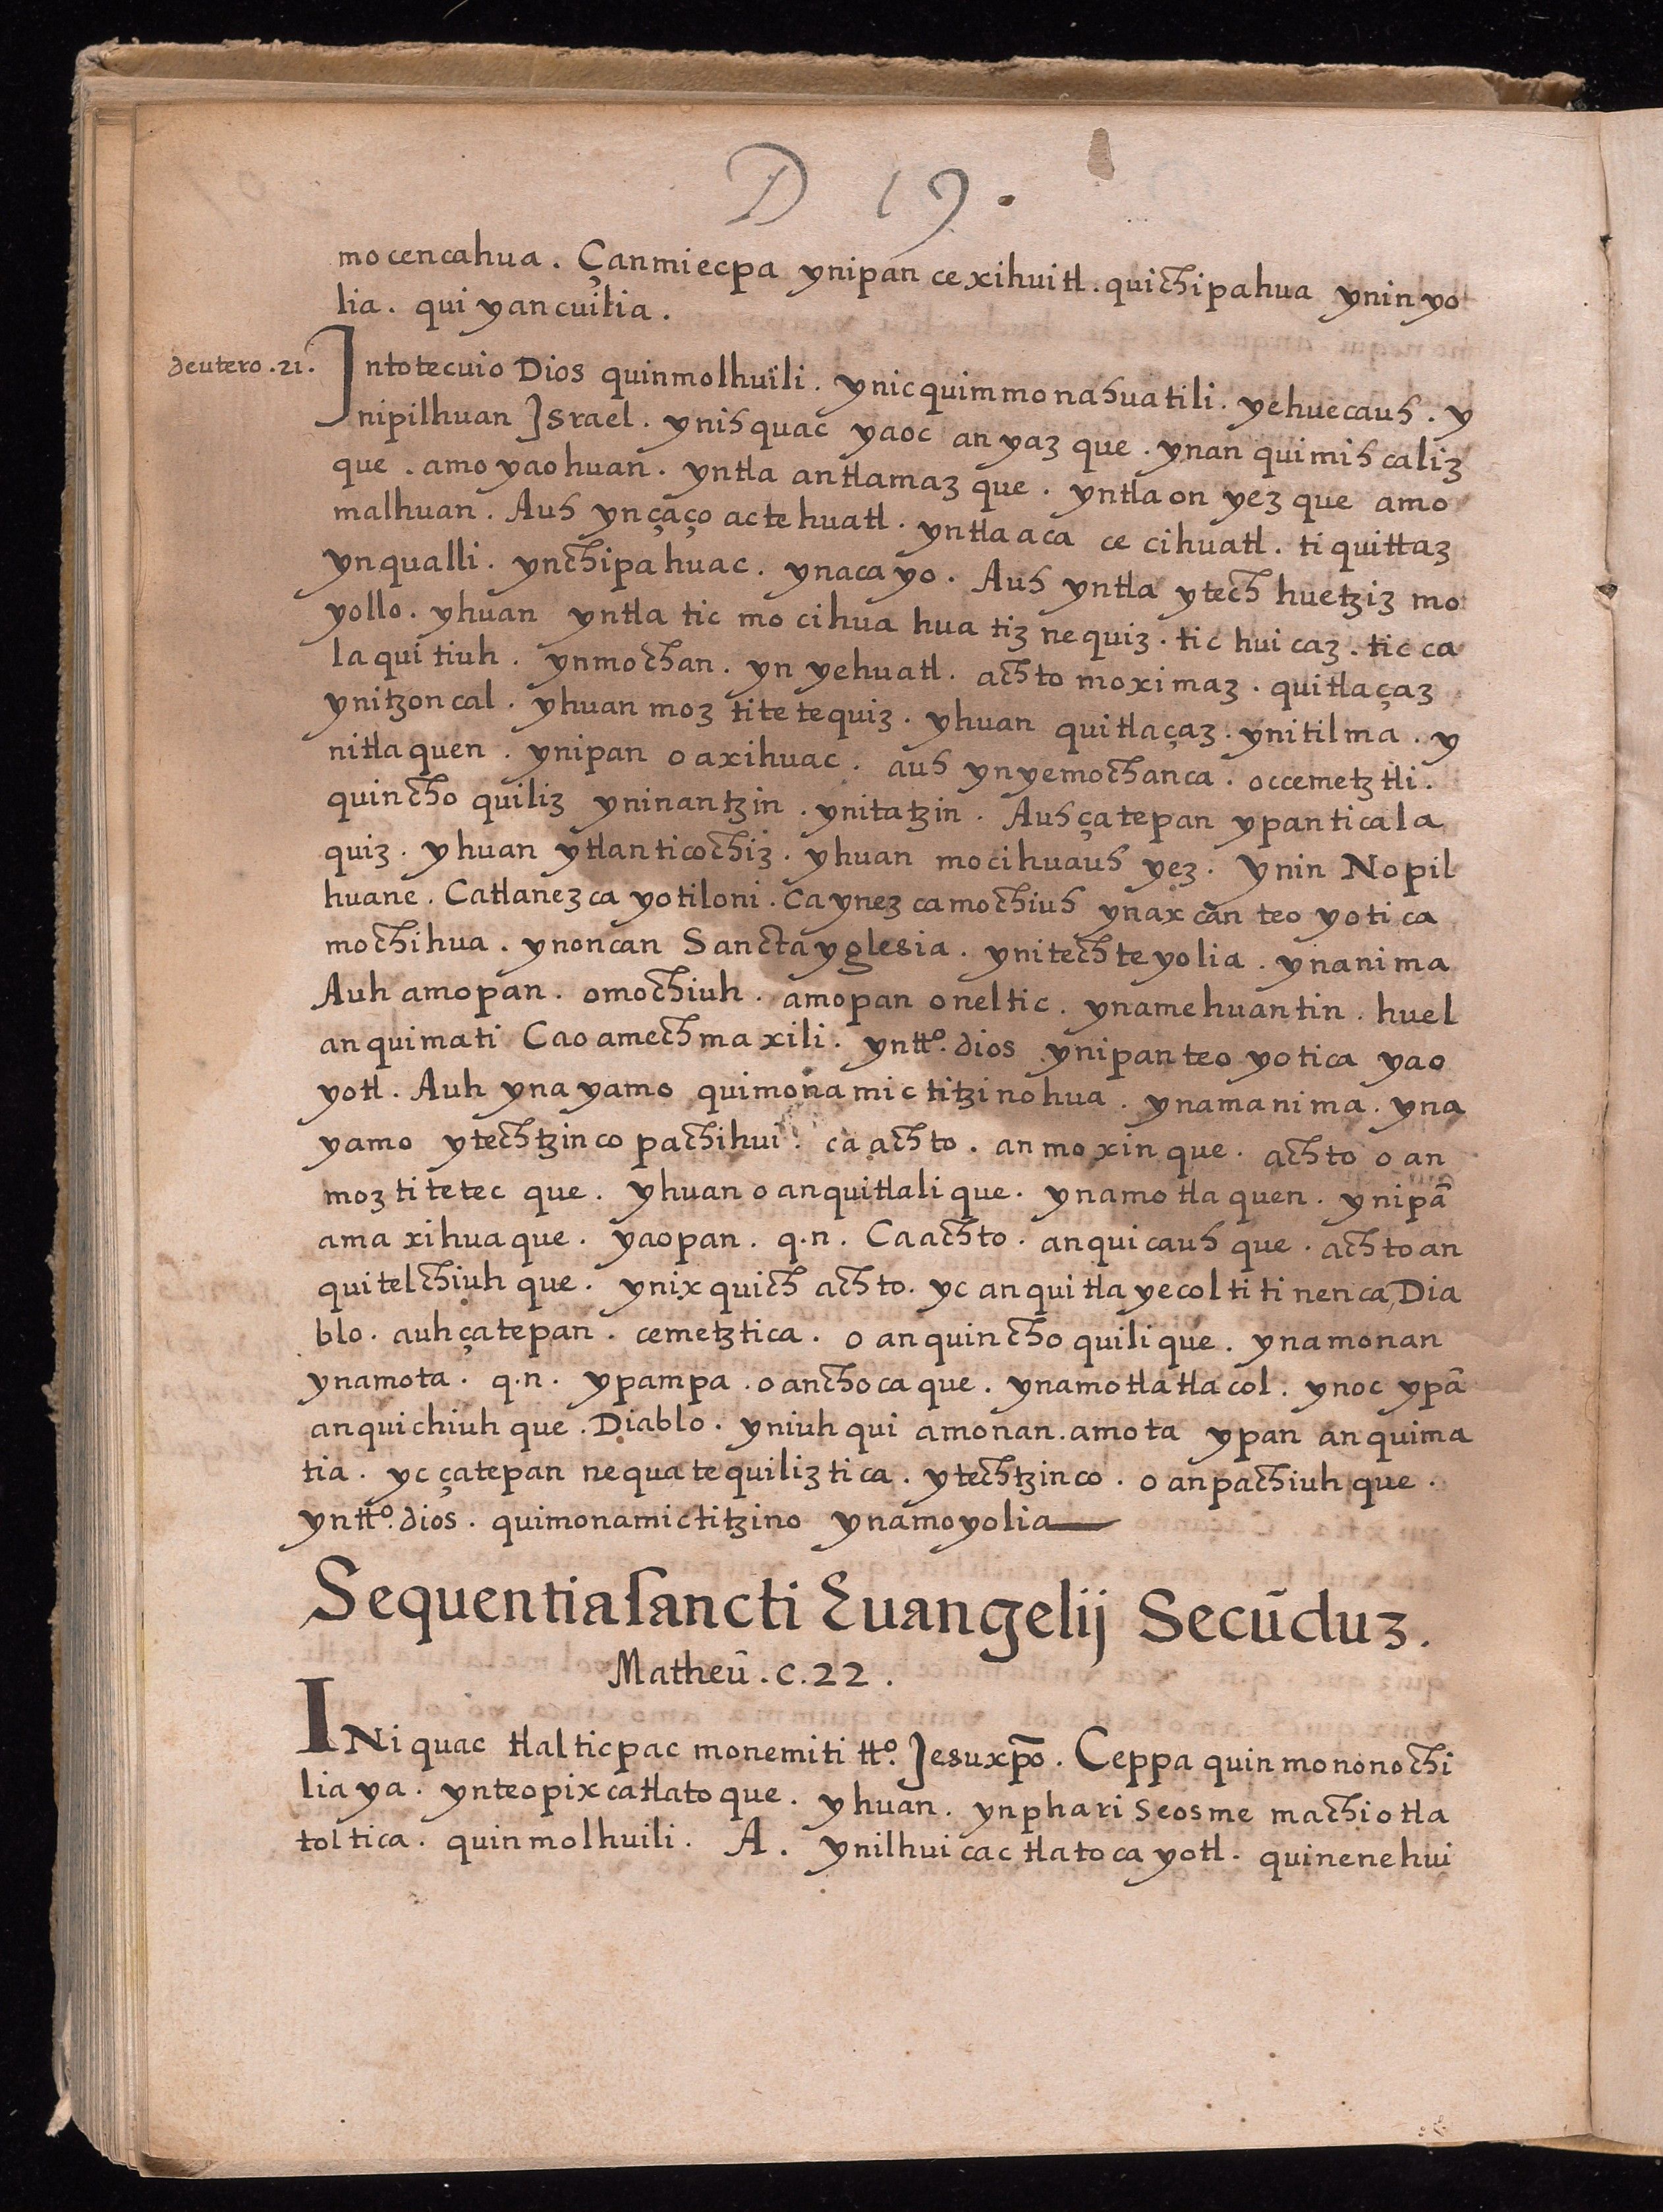 D 19.
mocencahua. Çanmiecpa ynipan cexihuitl. quichipahua yninyo
lia. quiyancuilia.
deutero.21.
Intotecuio Dios quinmolhuili. ynicquimmonahuatili. yehuecauh. y
nipilhuan Israel. ynihquac yaoc anyazque. ynanquimihcaliz
que. amoyaohuan. yntla antlamazque. yntlaonyezque amo
malhuan. Auh ynçaço actehuatl. yntlaaca ce cihuatl. tiquittaz
ynqualli. ynchipahuac. ynacayo. Auh yntla ytech huetziz mo
yollo. yhuan yntla ticmocihuahuatiznequiz. tichuicaz. ticca
laquitiuh. ynmochan. yn yehuatl. achto moximaz. quitlaçaz
ynitzoncal. yhuan moztitetequiz. yhuan quitlaçaz. ynitilma. y
nitlaquen. ynipan oaxihuac. auh ynyemochanca. occemetztli.
quinchoquiliz yninantzin. ynitatzin. Auhçatepan ypanticala
quiz. yhuan ytlanticochiz. yhuan mocihuauh yez. Ynin Nopil
huane. Catlanezcayotiloni. Caynezcamochiuh ynaxcan teoyotica
mochihua. ynoncan Sancta yglesia. ynitechteyolia. ynanima
Auh amopan. omochiuh. amopan oneltic. ynamehuantin. huel
anquimati Caoamechmaxili. yntt.º dios ynipanteoyotica yao
yotl. Auh ynayamo quimonamictitzinohua. ynamanima. yna
yamo ytechtzinco pachihui. ca achto. anmoxinque. achto oan
moztitetecque. yhuan oanquitlalique. ynamotlaquen. ynipā
amaxihuaque. yaopan. q.n. Caachto. anquicauhque. achtoan
quitelchiuhque. ynixquich achto. yc anquitlayecoltitinenca Dia
blo. auhçatepan. cemetztica. oanquinchoquilique. ynamonan
ynamota. q.n. ypampa. oanchocaque. ynamotlatlacol. ynoc ypā
anquichiuhque. Diablo. yniuhqui amonan. amota ypan anquima
tia. yc çatepan nequatequiliztica. ytechtzinco. oanpachiuhque.
yntt.º dios. quimonamictitzino ynamoyolia
Sequentia sancti Euangelij Secūduz.
Matheū. c.22.
INiquac tlalticpac monemiti tt.º Jesuxp̄o. Ceppa quinmononochi
liaya. ynteopixcatlatoque. yhuan. ynphariseosme machiotla
toltica. quinmolhuili. A. ynilhuicac tlatocayotl. quinenehui